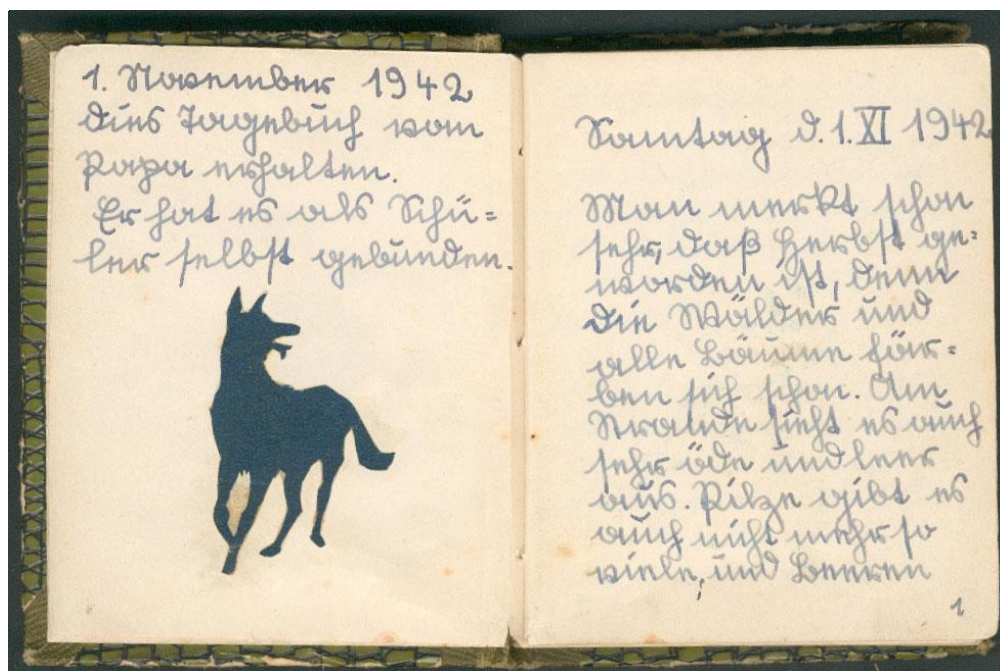 1. November 1942
dies Tagebuch vom
Papa erhalten.
Er hat es als Schü=
ler selbst gebunden.
Sonntag d. 1. XI 1942
Man merkt schon
sehr, daß Herbst ge=
worden ist, denn
die Wälder und
alle Bäume fär=
ben sich schon. Am
Strande sieht es auch
sehr öde und leer
aus. Pilze gibt es
auch nicht mehr so
viele, und Beeren
1